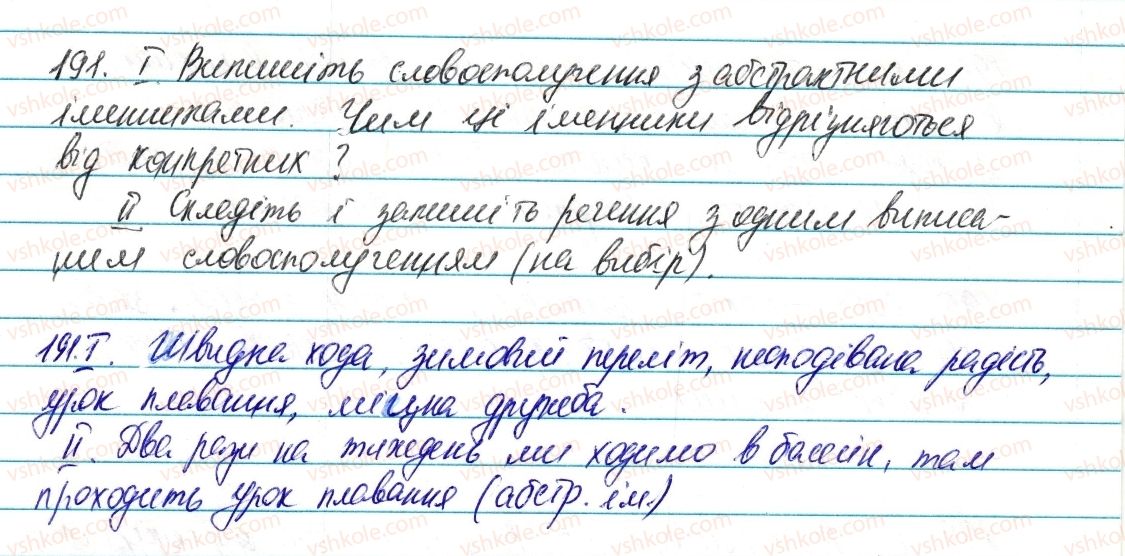 191. I Випишіть словосполучення з абстрактними
іменниками. Чим ці іменники відрізняються
від конкретних?
II Складіть і запишіть речення з одним виписа-
ним словосполученням (на вибір).
191.I. Швидка хода, зимовий переліт, несподівана радість,
урок плавання, міцна дружба.
II. Два рази на тиждень ми ходимо в басейн, там
проходить урок плавання (абстр. ім.)